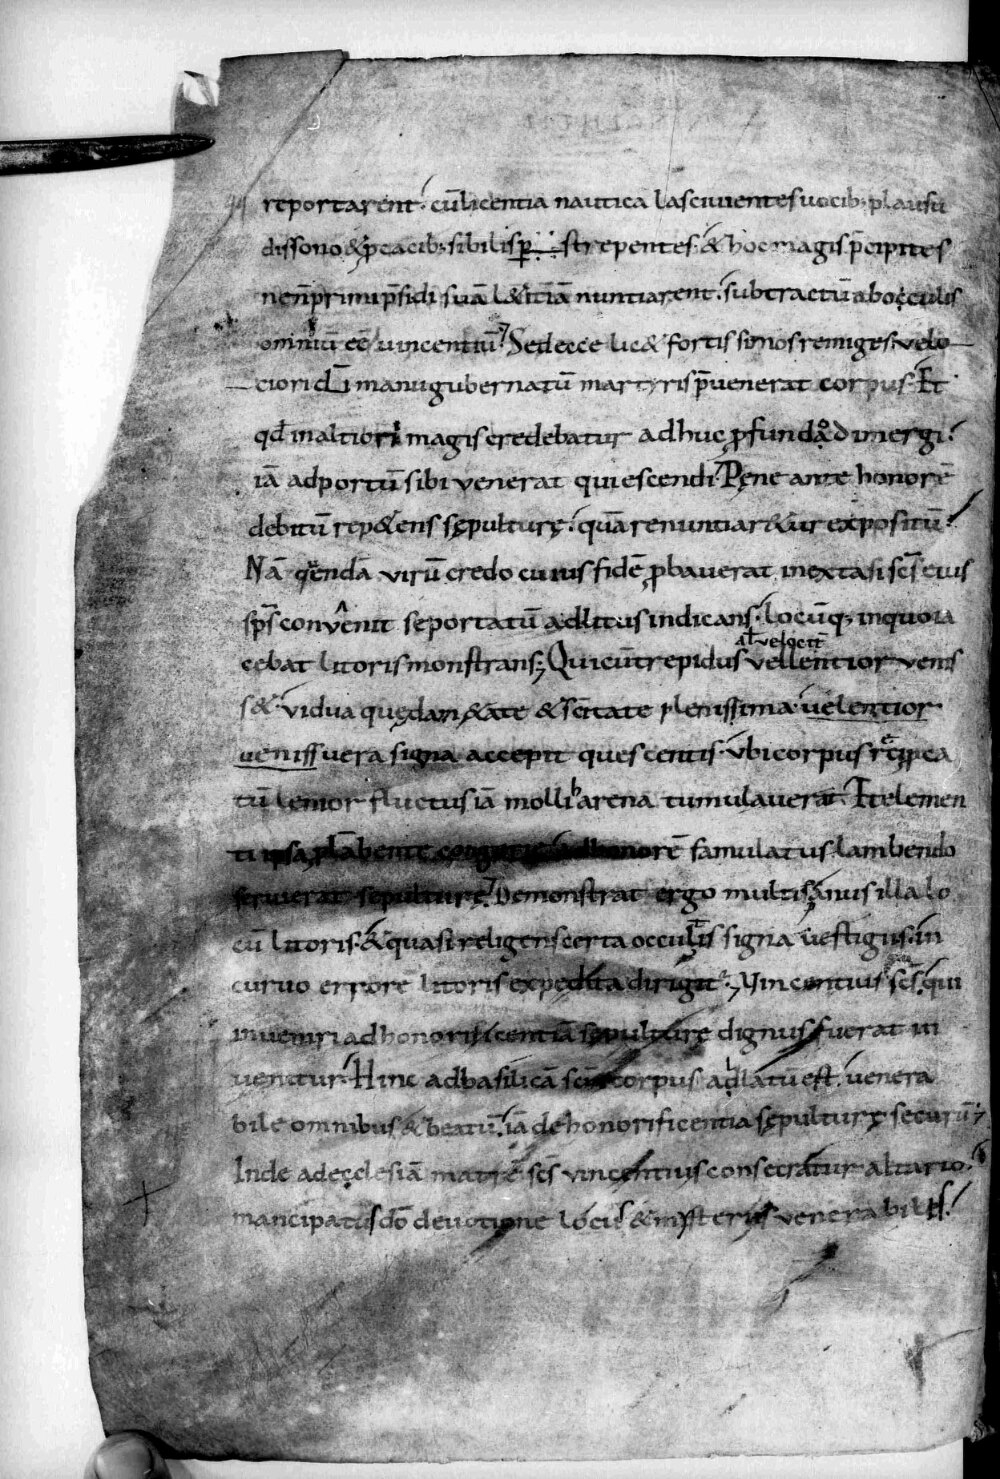 reportarent. cū licentia nautica lasciuientes uocib; plausu
dissono & p̄cacib; sibilis per strepentes. & hoc magis p̄cipites
ne n̄ primi p̄sidi suā lætitiā nuntiarent. subtractū ab oculis
omniū eē uincentiū. Sed ecce lic& fortissimos remiges. velo
ciori dī manu gubernatū martyris p̄uenerat corpus. Et
qd̄ in altiori magis credebatur adhuc profundo dimergi.
iā ad portū sibi venerat quiescendi. Pęne ante honorē
debitū rep&ens sępulturę. quā renuntiar&ur expositū.
Nā quendā virū credo cuius fidē probauerat in extasi scs̄ eius
sps̄ convēnit se portatū ad litus indicans. locūq; in quo ia
cebat litoris monstrans; Qui cū trepidus vellentior venis
al velocit̄
s& vidua quędam ætate & scītate plenissima. uelentior
ueniss uera signa accepit quescentis. ubi corpus
tū lenior fluctus iā molli harena tumulauerat. Et elemen
ti ipsa honorē famulatus lambendo
seruierat sepulturę. Demonstrat ergo multis anus illa lo
cū litoris. & quasi religens certa occultis signa uestigiis. in
curuo errore litoris expedita dirigit. Vincentius scs̄. qui
inueniri ad honorificentiā sępulturę dignus fuerat in
uenitur. Hinc ad basilicā scm̄ corpus adlatū est. venera
bile omnibus & beatū. iā de honorificentia sępulturę securū;
Inde ad ecclesiā matrē scs̄ vincentius consecratur altario.
mancipatus dō deuotione locis & mysteriis venerabiles.